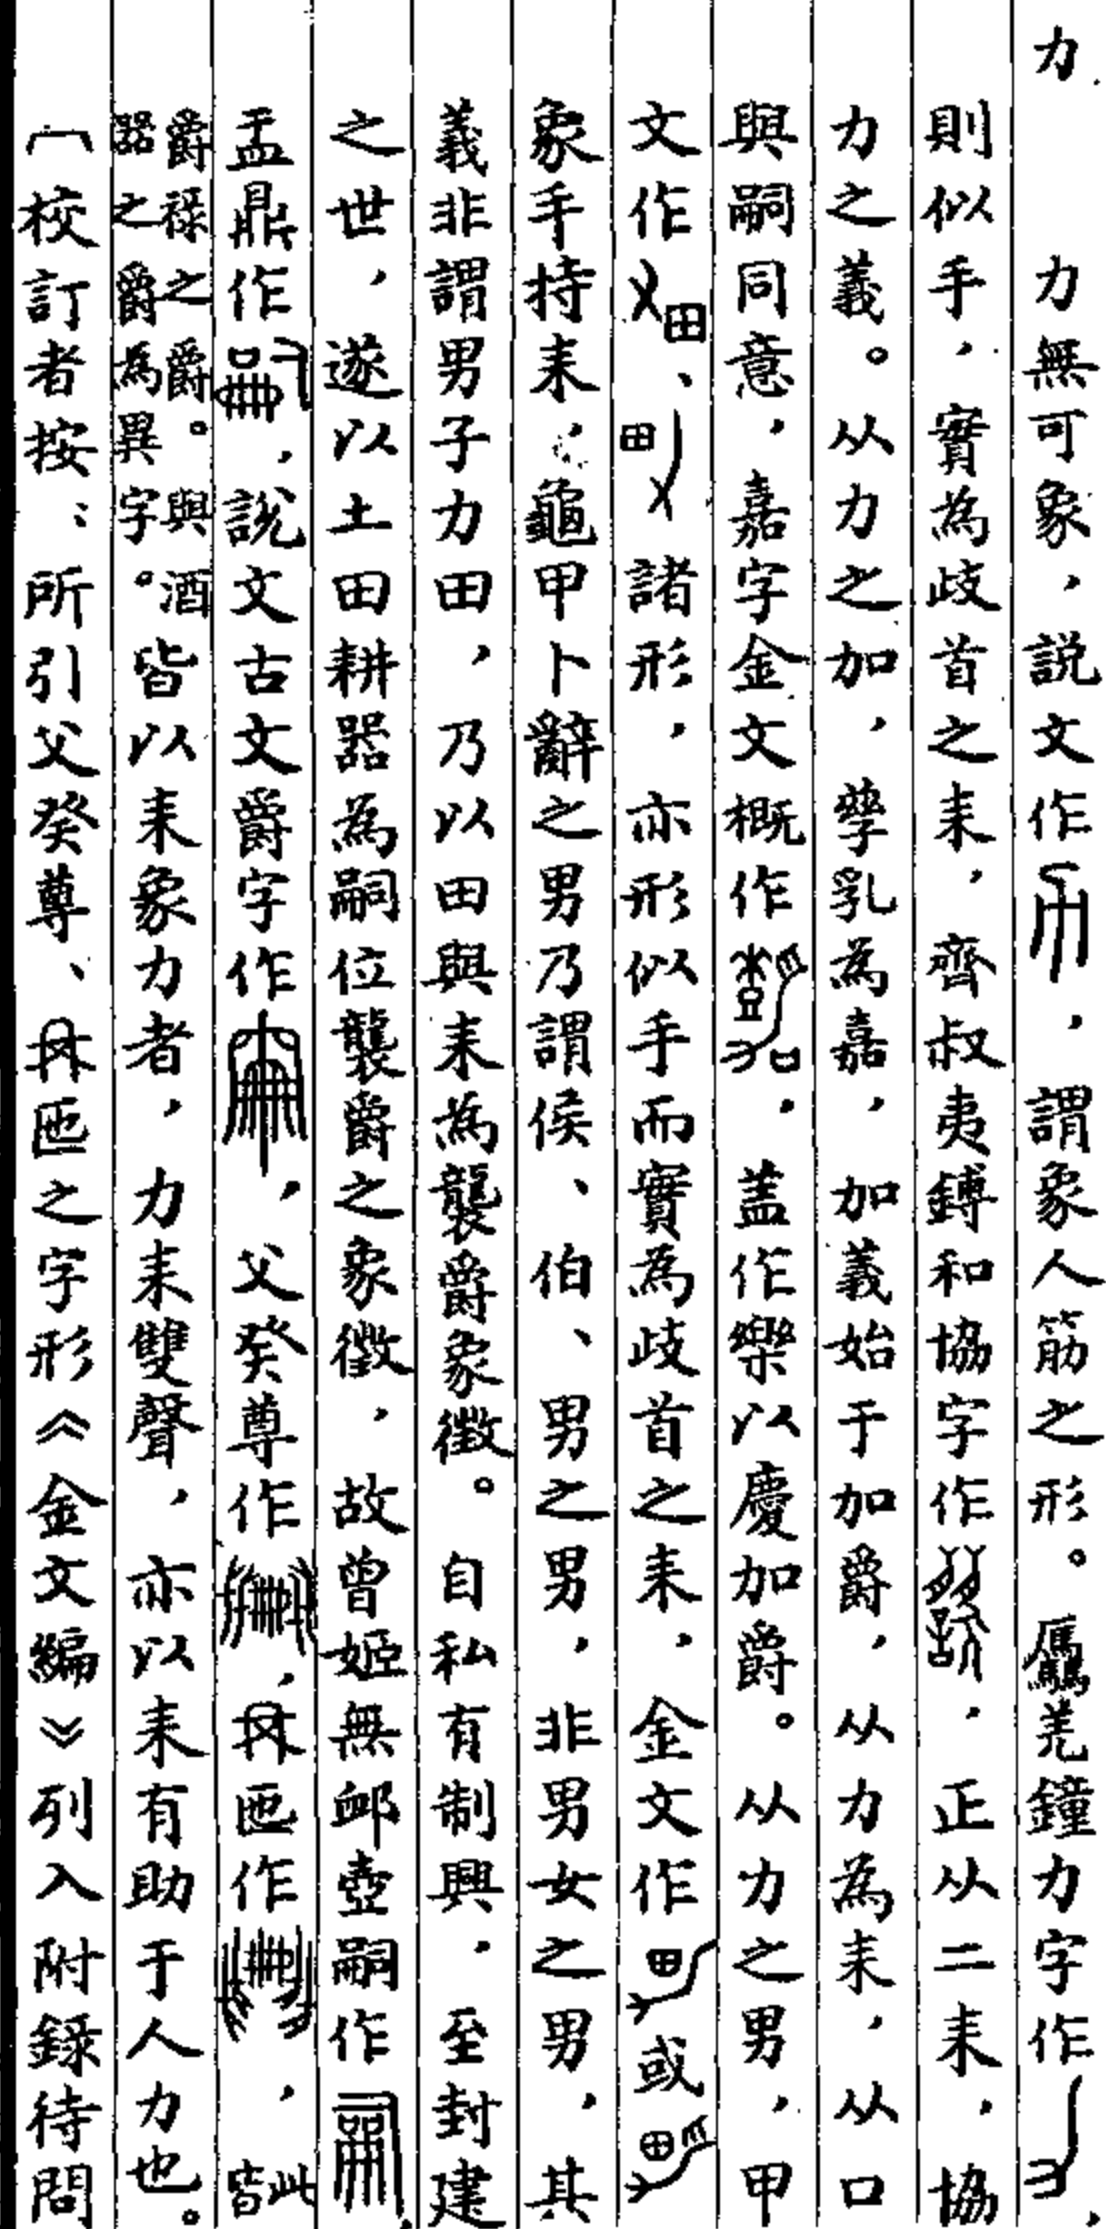 力　力無可象，説文作，謂象人筋之形。驫羌鐘力字作，
則似手，實為歧首之耒，齊叔夷鎛和協字作，正从二耒，協
力之義。从力之加，孳乳為嘉，加義始于加爵，从力為耒，从口
與嗣同意，嘉字金文概作，蓋作樂以慶加爵。从力之男，甲
文作、諸形，亦形似手而實為歧首之耒，金文作或
象手持耒，龜甲卜辭之男乃謂侯、伯、男之男，非男女之男，其
義非謂男子力田，乃以田與耒為襲爵象徵。自私有制興，至封建
之世，遂以土田耕器為嗣位襲爵之象徵，故曾姬無卹壺嗣作，
盂鼎作，説文古文爵字作，父癸尊作，匜作，此皆
爵禄之爵。與酒器之爵為異字。皆以耒象力者，力耒雙聲，亦以耒有助于人力也。
〔校訂者按：所引父癸尊、匜之字形《金文編》列入附錄待問